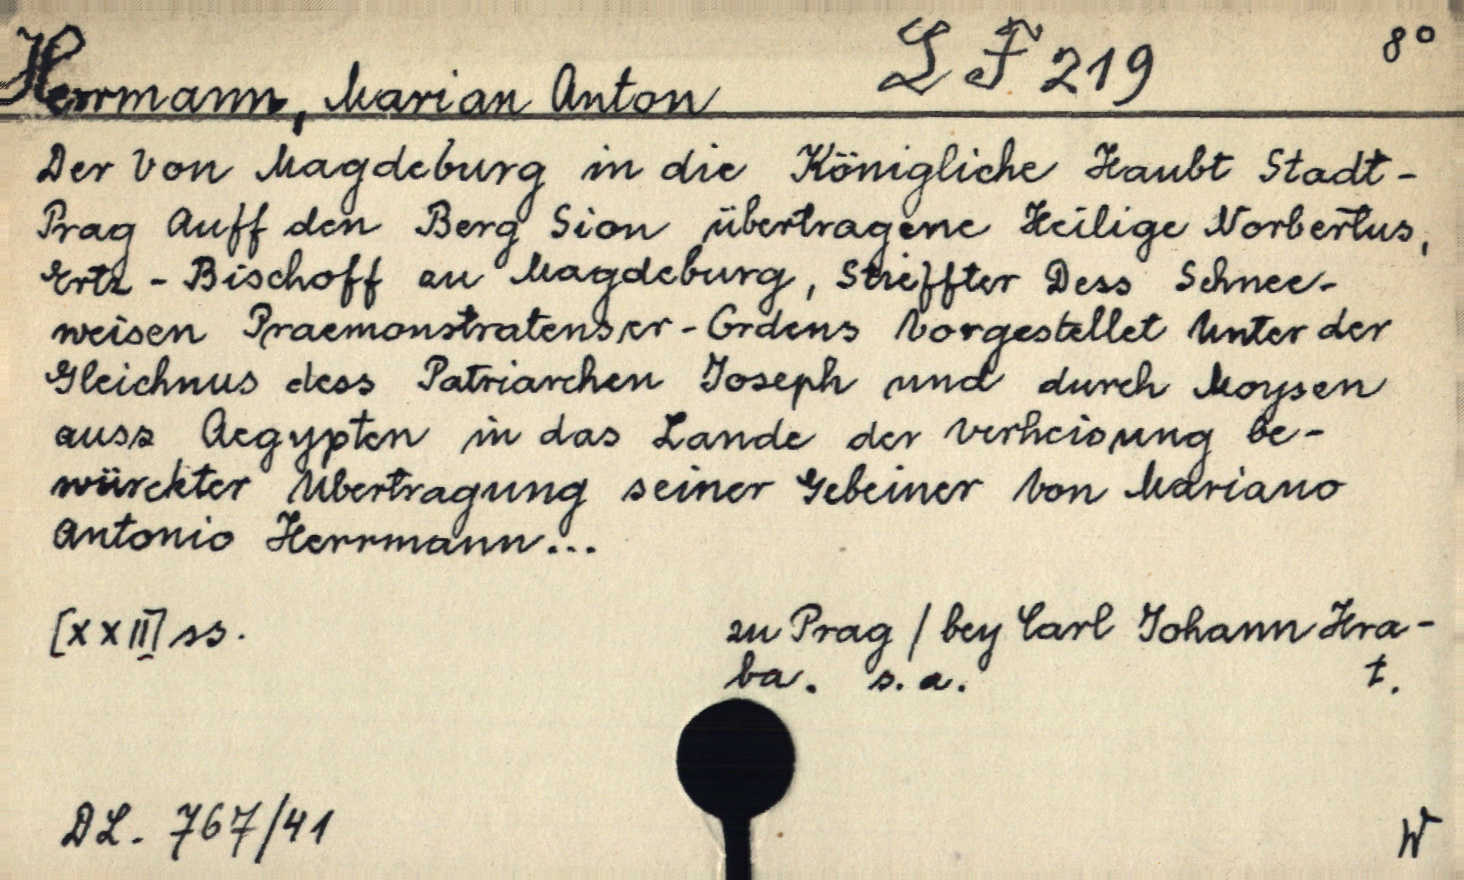 Herrmann, Marian Anton L F 219 8°
Der Von Magdeburg in die Königliche Haubt Stadt-
Prag Auff den Berg Sion übertragene Heilige Norbertus,
Ertz-Bischoff zu Magdeburg, Stieffter Dess Schnee-
weisen Praemonstratenser-Ordens Vorgestellet Unter der
Gleichnus dess Patriarchen Joseph und durch Moysen
auss Aegypten in das Lande der Verheisung be-
würckter Ubertragung seiner Gebeiner Von Mariano
Antonio Herrmann...
[XXII] ss. zu Prag / bey Carl Johann Hra-
ba. s.a. t.
DL. 767/41 W